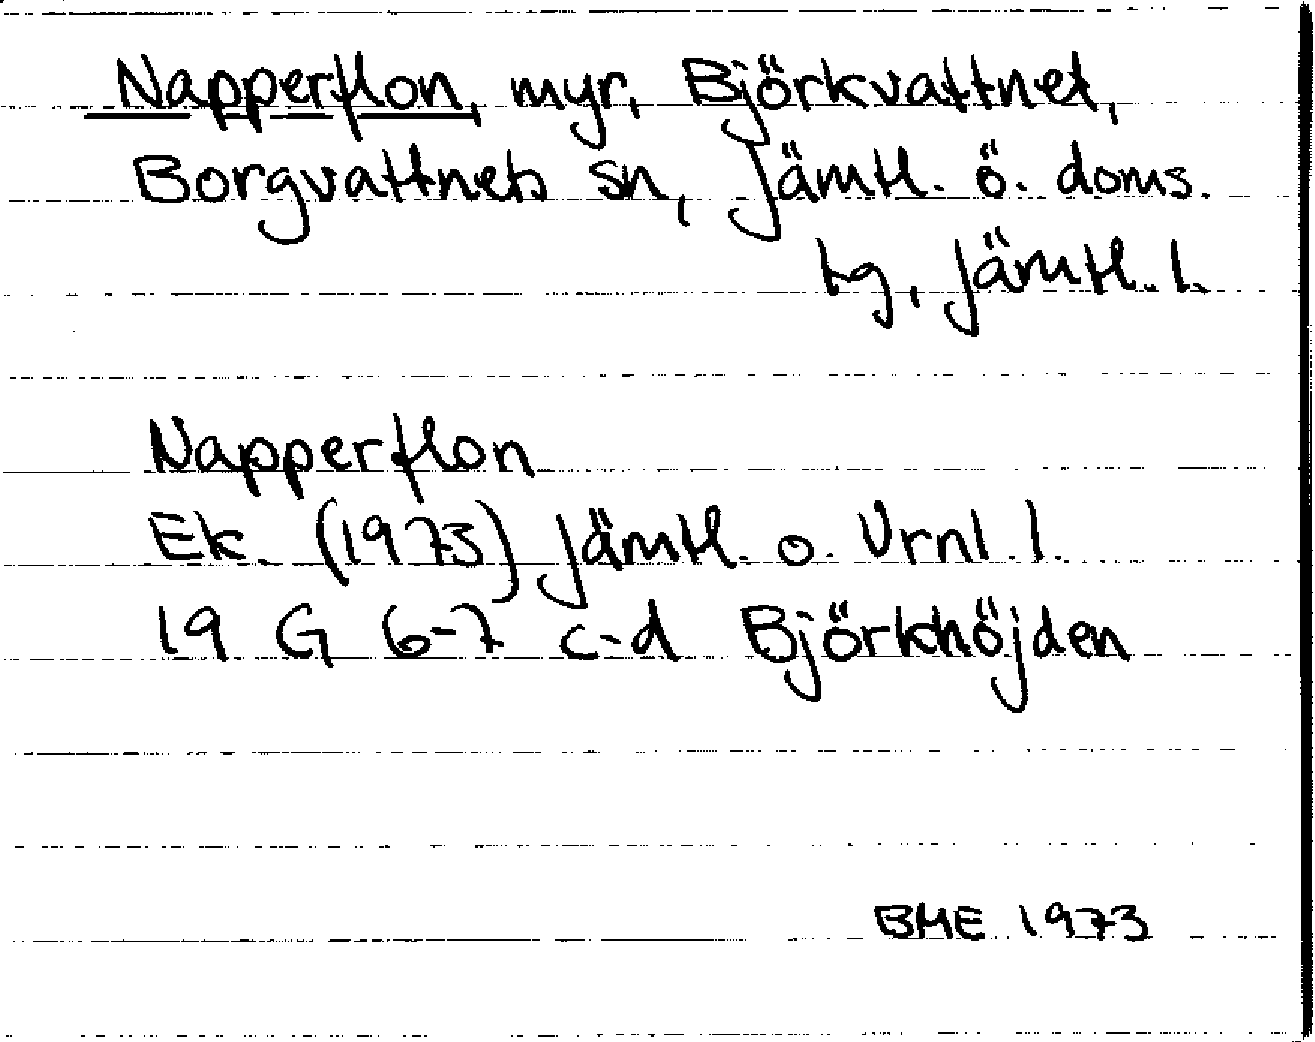 Napperflon, myr, Björkvattnet,
Borgvattnets sn, Jämtl. ö. doms.
tg, Jämtl. l.
Napperflon
Ek. (1973) Jämtl. o. Vrnl. l.
19 G 6-7 c-d Björkhöjden
BME 1973